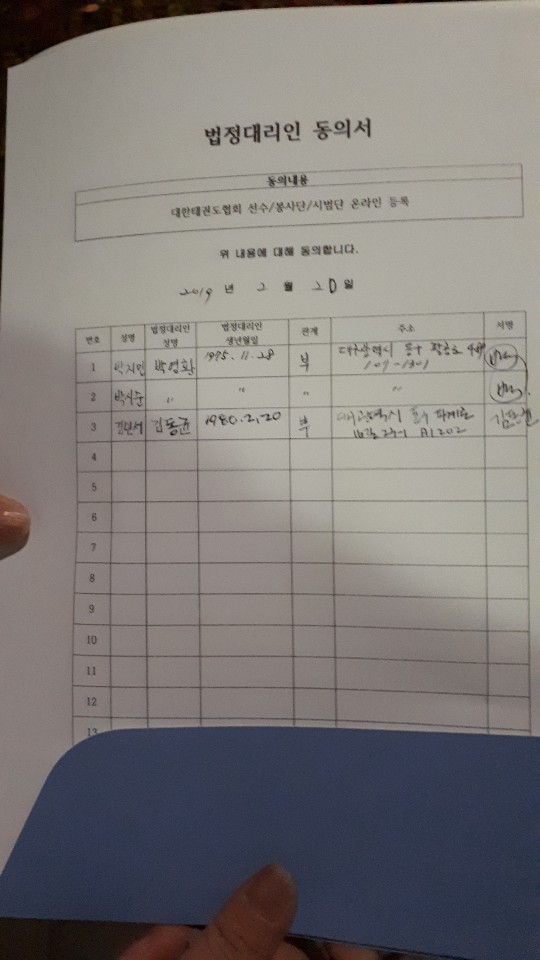 법정대리인 동의서
동의내용
대한태권도협회 선수/봉사단/시범단 온라인 등록
위 내용에 대해 동의합니다.
2019 년 2 월 20 일
번호 성명 법정대리인 성명 법정대리인 생년월일 관계 주소 서명
1 박지민 박영환 1975.11.28 부 대구광역시 동구
107-1301
2 박시준 〃 〃 〃 〃
3 김민서 김동균 1980.2.20 부 대구광역시 동구 파계로
A1202
4
5
6
7
8
9
10
11
12
13